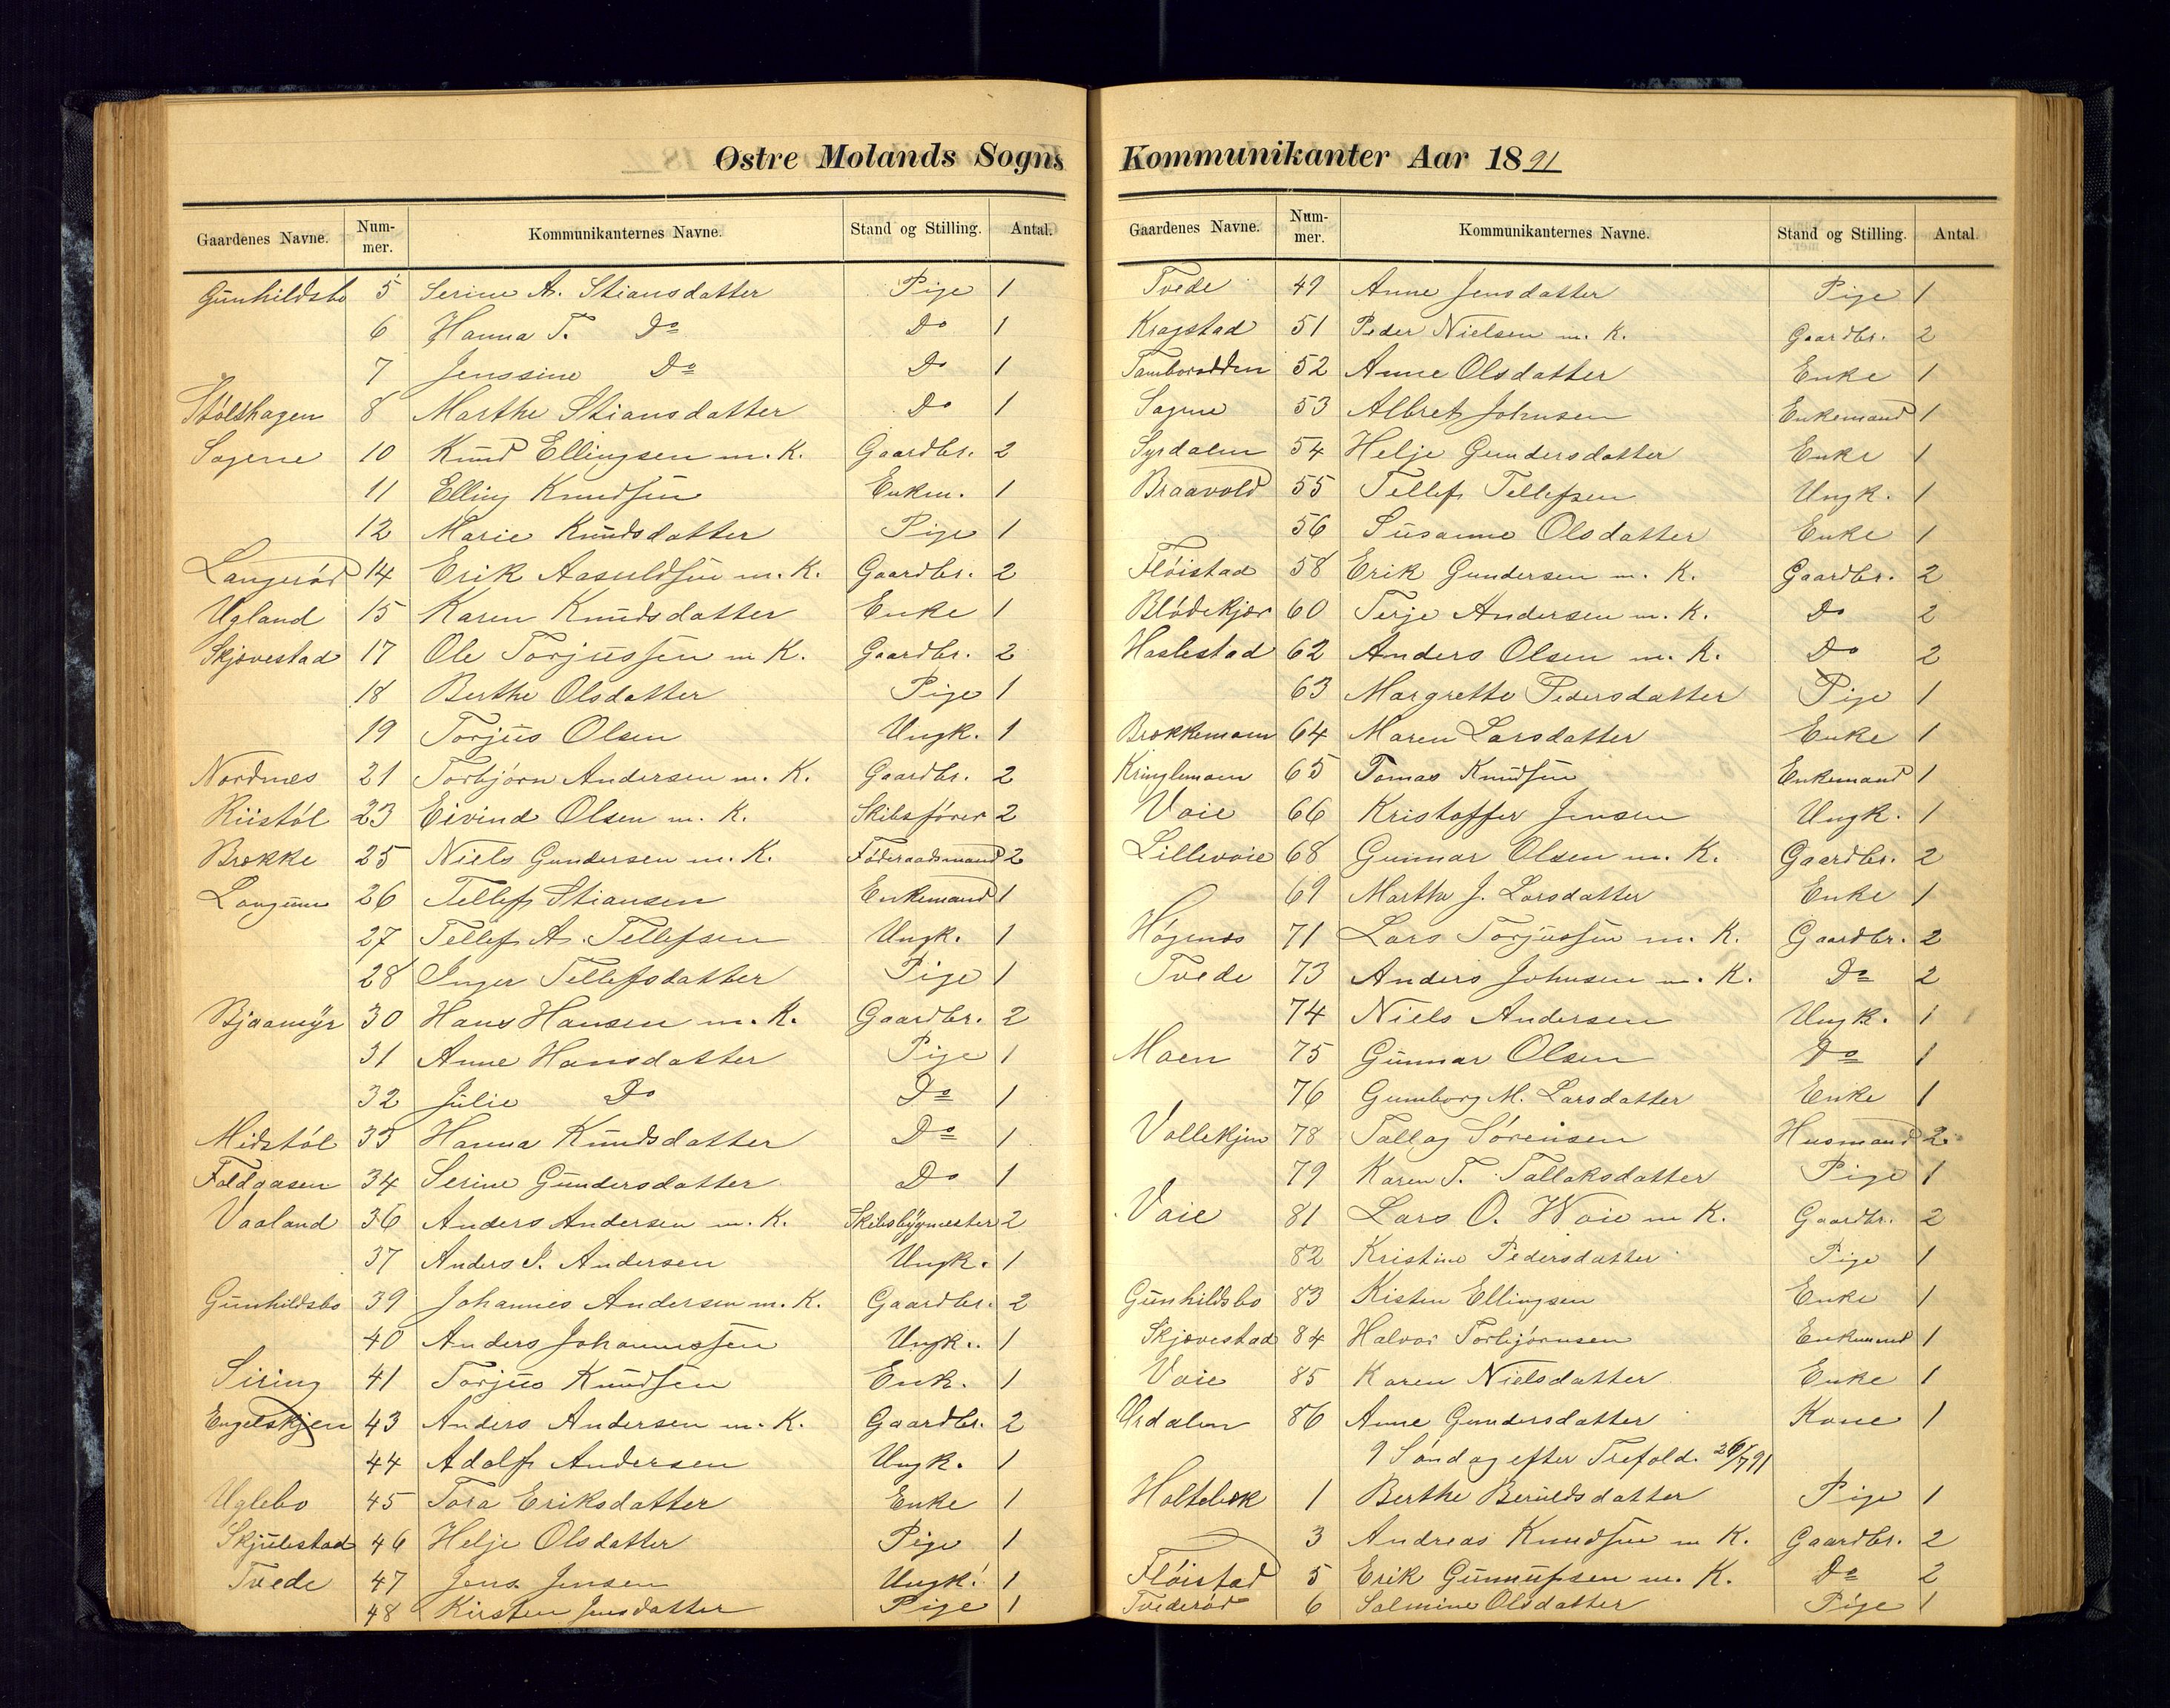 Østre Molands Sogns
Gaardenes Navne. Num-mer. Kommunikanternes Navne. Stand og Stilling. Antal.
Gunhildsbo 5 Serine A. Stiansdatter Pige 1
6 Hanna T. Do Do 1
7 Jenssine Do Do 1
Stølshagen 8 Marthe Stiansdatter Do 1
Sagene 10 Knud Ellingsen m. K. Gaardbr. 2
11 Elling Knudsen Enkm. 1
12 Marie Knudsdatter Pige 1
Langerød 14 Erik Aasuldsen m. K. Gaardbr. 2
Ugland 15 Karen Knudsdatter Enke 1
Skjævestad 17 Ole Torjussen m K. Gaardbr. 2
18 Berthe Olsdatter Pige 1
19 Torjus Olsen Ungk. 1
Nordnes 21 Torbjørn Andersen m. K. Gaardbr. 2
Riistøl 23 Eivind Olsen m. K. Skibsfører 2
Brække 25 Niels Gundersen m. K. Føderaadsmand 2
Langum 26 Tellef Stiansen Enkemand 1
27 Tellef A. Tellefsen Ungk. 1
28 Inger Tellefsdatter Pige 1
Bjaamyr 30 Hans Hansen m. K. Gaardbr. 2
31 Anne Hansdatter Pige 1
32 Julie Do Do 1
Midstøl 33 Hanna Knudsdatter Do 1
Foldaasen 34 Serine Gundersdatter Do 1
Vaaland 36 Anders Andersen m. K. Skibsbygmester 2
37 Anders S. Andersen Ungk. 1
Gunhildsbo 39 Johannes Andersen m. K. Gaardbr. 2
40 Anders Johannessen Ungk. 1
Siring 41 Torjus Knudsen Enk. 1
Engelskjen 43 Anders Andersen m. K. Gaardbr. 2
44 Adolf Andersen Ungk. 1
Uglebo 45 Tora Eriksdatter Enke 1
Skjulestad 46 Helje Olsdatter Pige 1
Tvede 47 Jens Jensen Ungk. 1
48 Kirsten Jensdatter Pige 1
Kommunikanter Aar 1891
Gaardenes Navne. Num-mer. Kommunikanternes Navne. Stand og Stilling. Antal.
Tvede 49 Anne Jensdatter Pige 1
Kragstad 51 Peder Nielsen m. K. Gaardbr. 2
52 Anne Olsdatter Enke 1
Sagene 53 Albret Johnsen Enkemand 1
Syrdalen 54 Helje Gundersdatter Enke 1
Braavold 55 Tellef Tellefsen Ungk. 1
56 Susanne Olsdatter Enke 1
Fløistad 58 Erik Gundersen m. K. Gaardbr. 2
Blødekjær 60 Terje Andersen m. K. Do 2
Haslestad 62 Anders Olsen m. K. Do 2
63 Margrethe Pedersdatter Pige 1
Brækkemoen 64 Maren Larsdatter Enke 1
Kringlemoen 65 Tomas Knudsen Enkemand 1
Vaie 66 Kristoffer Jensen Ungk. 1
Lillevaie 68 Gunnar Olsen m. K. Gaardbr. 2
69 Marthe J. Larsdatter Enke 1
Høgenes 71 Lars Torjussen m. K. Gaardbr. 2
Tvede 73 Anders Johnsen m. K. Do 2
74 Niels Andersen Ungk. 1
Moen 75 Gunnar Olsen Do 1
76 Gumborg M. Larsdatter Enke 1
Vallekjen 78 Tallag Sørensen Husmand 2
79 Karen T. Tallaksdatter Pige 1
Vaie 81 Lars O. Waie m K. Gaardbr. 2
82 Kristine Pedersdatter Pige 1
Gunhildsbo 83 Kisten Ellingsen Enke 1
Skjævestad 84 Halvor Torbjørnsen Enkemand 1
Vaie 85 Karen Nielsdatter Enke 1
Urdalen 86 Anne Gundersdatter Kone 1
9 Søndag efter Trefold. 26/7 91
Holtebæk 1 Berthe Beruldsdatter Pige 1
3 Andreas Knudsen m K. Gaardbr. 2
Fløistad 5 Erik Gunnufsen m. K. Do 2
Tvederød 6 Salmine Olsdatter Pige 1